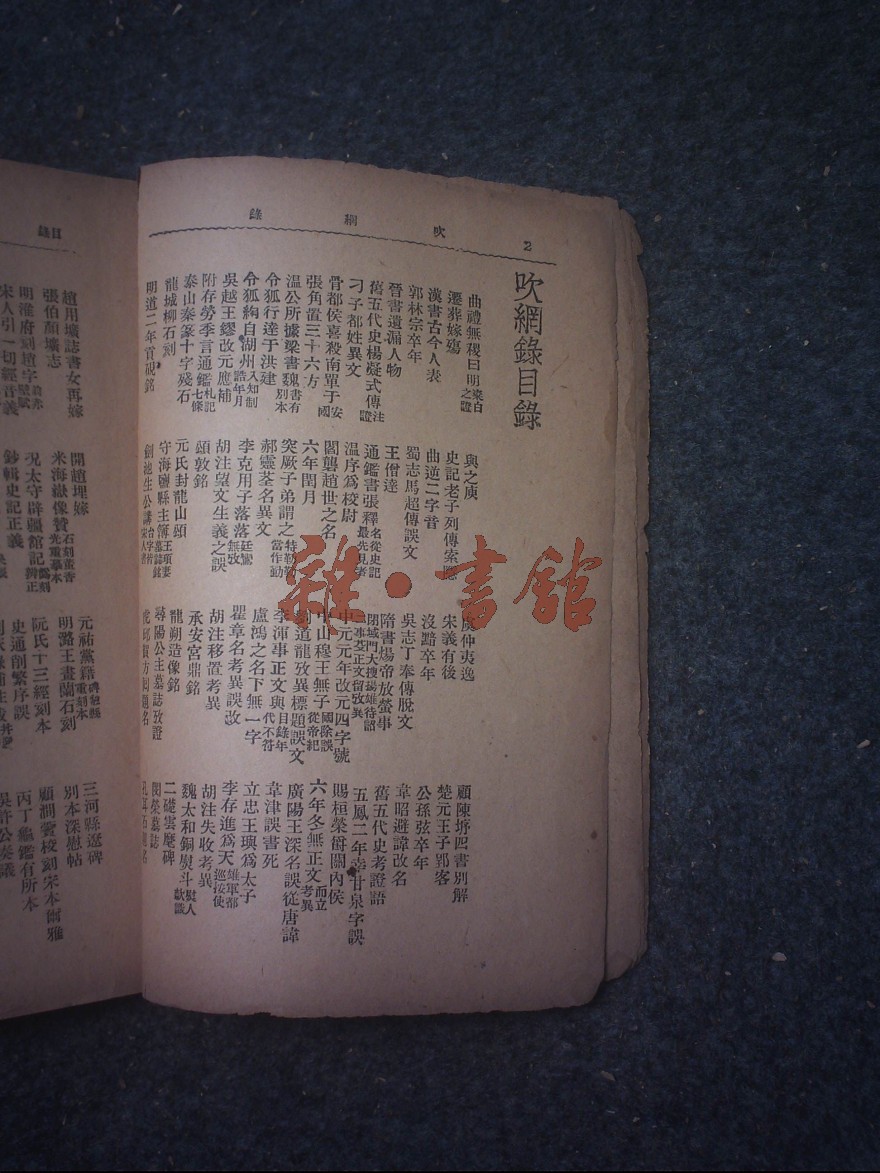 2 吹網錄
吹網錄目錄
曲禮無稷曰明粢之證
遷葬嫁殤
漢書古今人表
郭林宗卒年
晉書遺漏人物
舊五代史楊凝式傳注證
刁子都姓異文
骨都侯喜殺南單于安國
張角置三十六方
温公所據梁書魏書有別本
令狐行達于洪建
令狐綯自湖州入知制誥年月
吳越王鏐改元應補
附存勞季言通鑑札記七條
泰山秦篆十字殘石
龍城柳石刻
明道二年貢硯銘
與之庾
史記老子列傳索隱
曲逆二字音
蜀志馬超傳誤文
王僧達
通鑑書張釋名從史記最先見者
温序爲校尉
閻襲趙世之名
六年閏月
突厥子弟謂之特勒勒當作勤
郝靈荃名異文
李克用子落落廷鸞無攷
胡注望文生義之誤
頭敦銘
元氏封龍山頌
守海鹽縣主簿王頊妻墓誌銘
劍池生公講台字非宋人書
虞仲夷逸
宋義有後
沒黯卒年
吳志丁奉傳脫文
隋書煬帝放螢事
閉城門大搜揚雄待詔
二本在正文留攷異
中元元年改元四字號
中山穆王無子國除誤從帝紀
劉道龍攷異標題誤文
李渾事正文與目錄年代不符
盧鴻之名下無一字
瞿章名考異誤改
胡注移置考異
承安宮鼎銘
龍朔造像銘
尋陽公主墓誌攷證
虎邱賀方回題名
顧陳垿四書別解
楚元王子郢客
公孫弦卒年
韋昭避諱改名
舊五代史考證語
五鳳二年幸甘泉字誤
賜桓榮爵關內侯
六年冬無正文而立考異
廣陽王深名誤從唐諱
韋津誤書死
立忠王璵爲太子
李存進爲天雄軍都巡按使
胡注失收考異
魏太和銅熨斗熨人款識
二礎雲麾碑
閔榮墓誌
目錄
趙用壙誌書女再嫁
張伯顏壙志
明淮府刻趙字
宋人引一切經音義
開趙埋嫁
米海嶽像贊石刻董香光重摹本
況太守辟疆館記偽刻辨正
鈔輯史記正義
元祐黨籍碑融縣重刻本
明潞王畫蘭石刻
阮氏十三經刻本
史通削繁序誤
三河縣遼碑
別本深慰帖
顧澗薲校刻宋本爾雅
丙丁龜鑑有所本
吳許公奏議
雜·書館